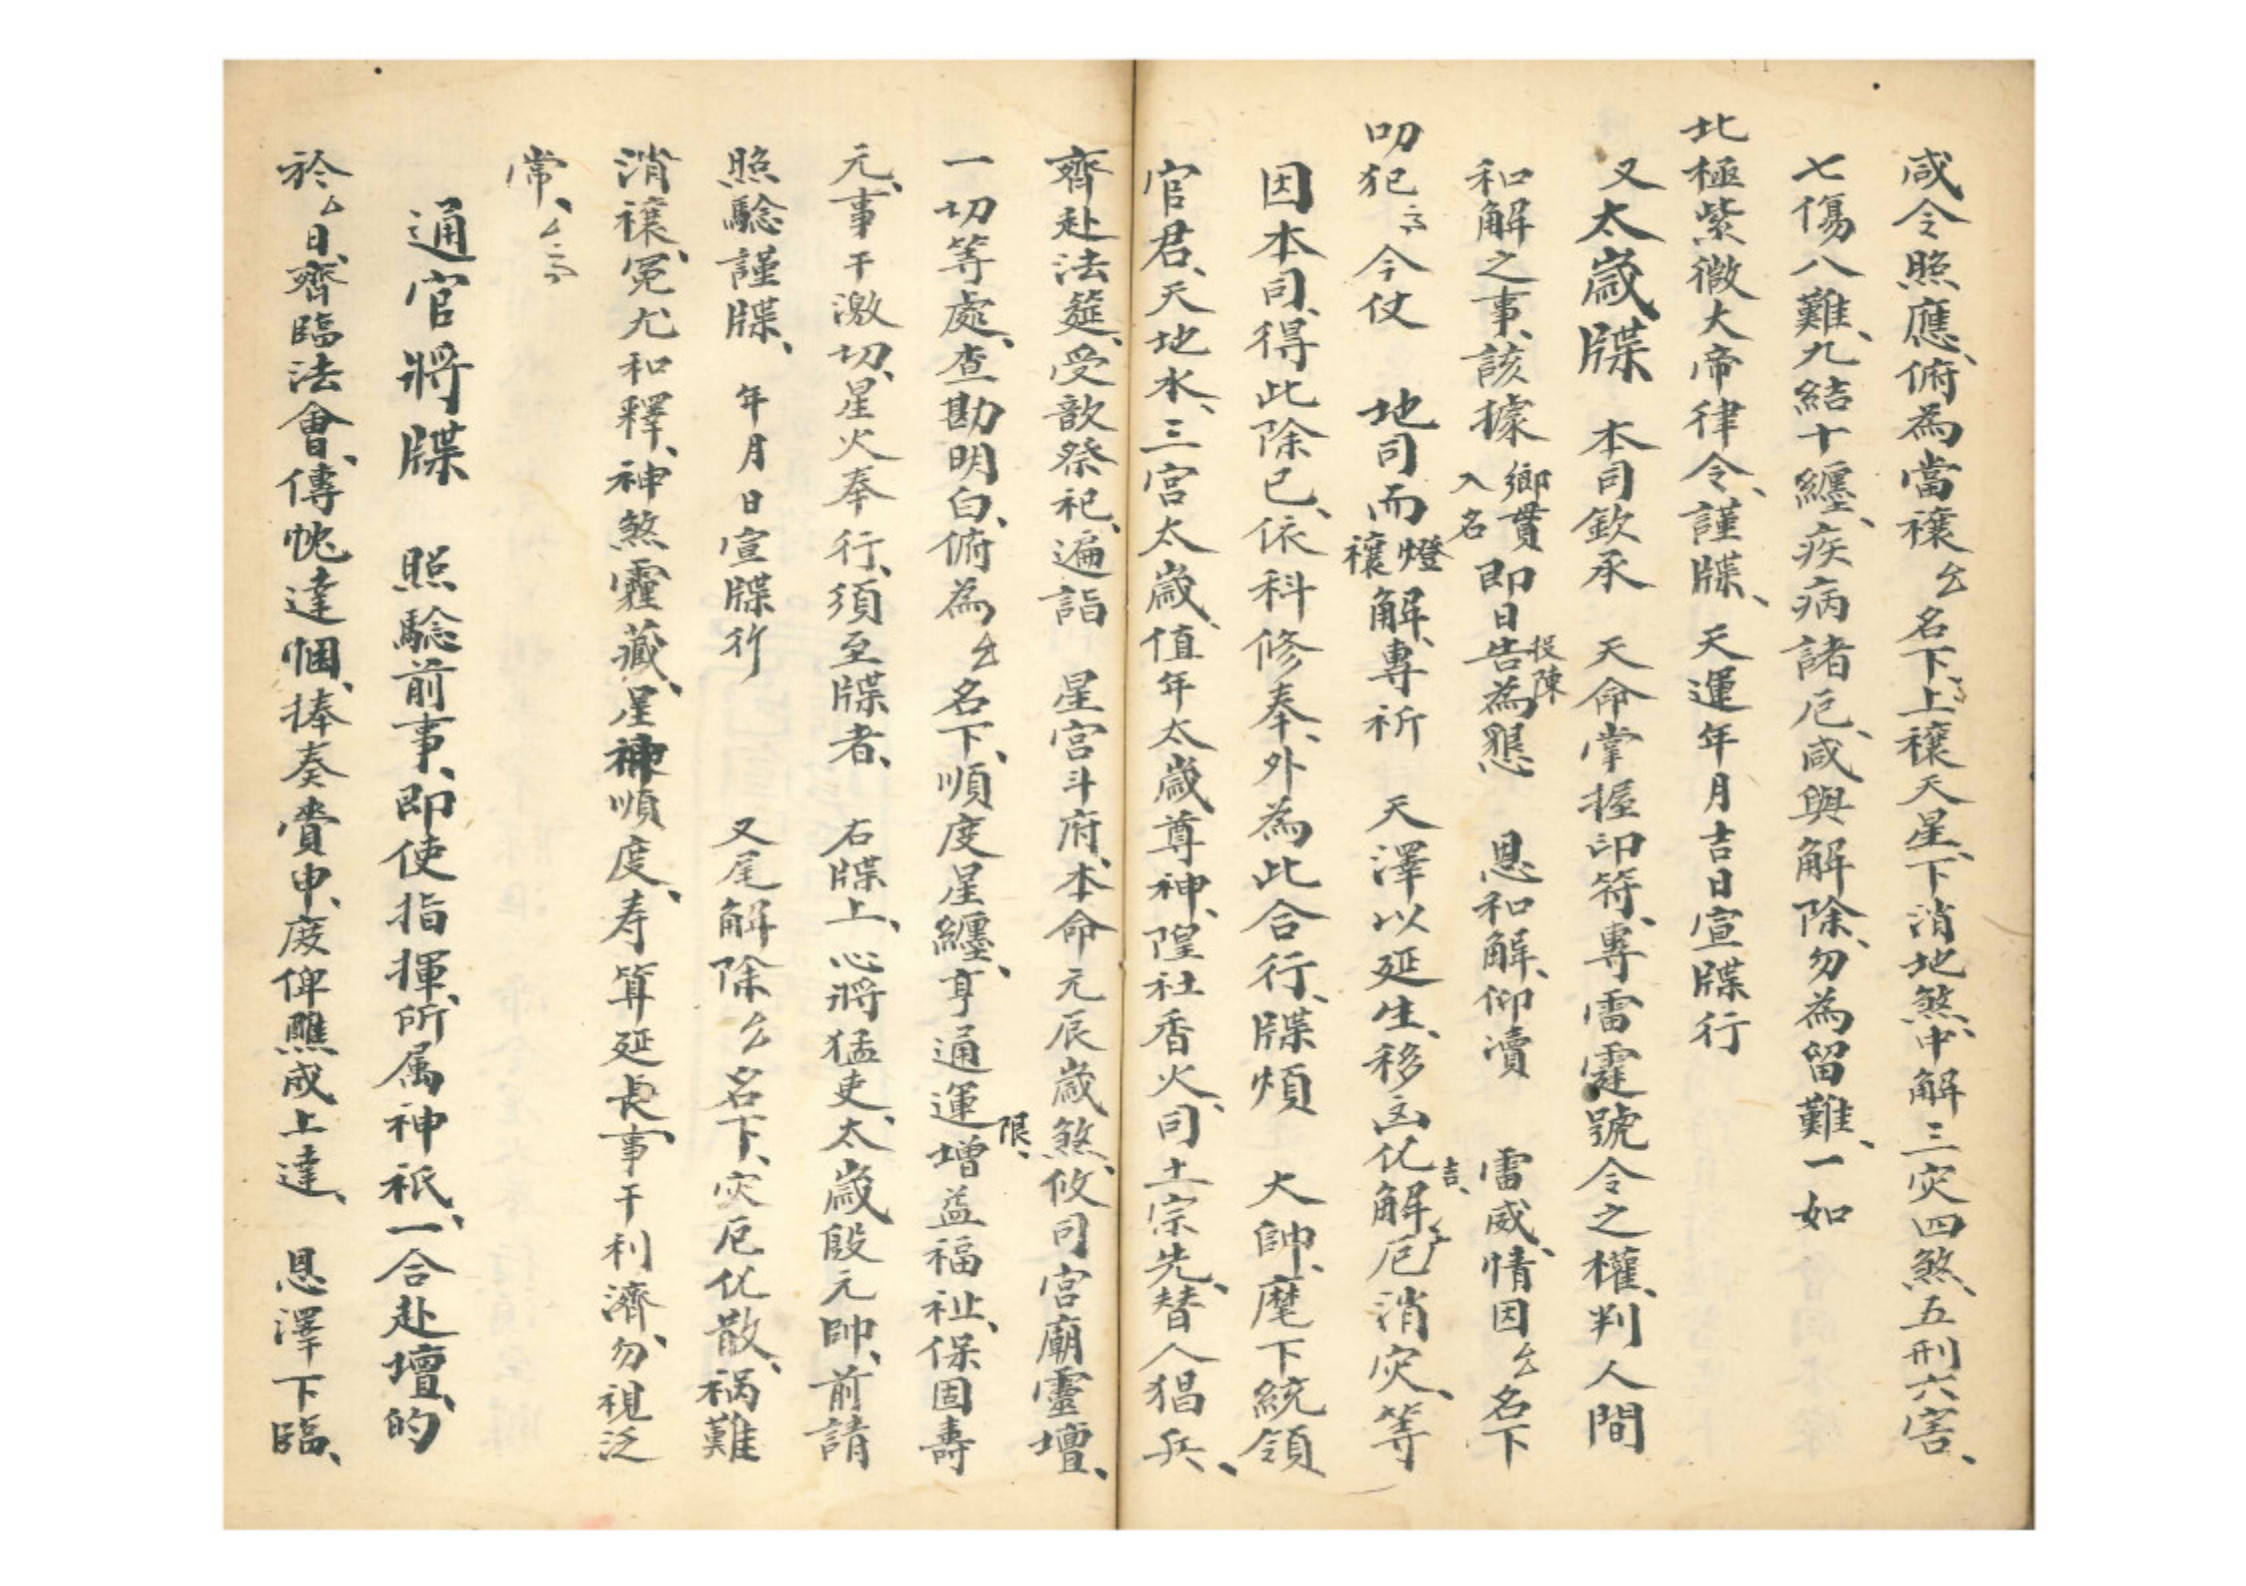 咸令照應、俯為當禳厶名下、上禳天星、下消地煞、中解三灾四煞、五刑六害、
七傷八難、九結十纏、疾病諸厄、咸與解除、勿為留難、一如
北極紫微大帝律令、謹牒、天運年月吉日宣牒行
又太歲牒 本司欽承 天命掌握印符、專雷霆號令之權、判人間
和解之事、該據鄉貫入名即日告投陳為懇 恩和解、仰瀆 雷威、情因厶名下
叩犯 今仗 地司而燈禳解、專祈 天澤以延生、移凶化吉、解厄消灾、等
因本司、得此除已、依科修奉、外為此合行、牒煩 大帥、麾下統領
官君、天地水、三宮太歲、值年太歲尊神、隍社香火、司土宗先、替人猖兵、
齊赴法筵、受歆祭祀、遍詣 星宮斗府、本命元辰歲煞、攸司宮廟靈壇、
一切等處、查勘明白、俯為厶名下、順度星纏、亨通運限、增益福祉、保固壽
元、事干激切、星火奉行、須至牒者、 右牒上、心將猛吏、太歲殷元帥、前請
照驗謹牒、 年月日宣牒行 又尾解除厶名下、灾厄化散、禍難
消禳、冤尤和釋、神煞霾藏、星神順度、寿算延長、事干利濟、勿視泛
常、
通官將牒 照驗前事、即使指揮、所属神祇、一合赴壇、的
於厶日、齊臨法會、傳忱達悃、捧奏賫申、度俾醮成上達、 恩澤下臨、